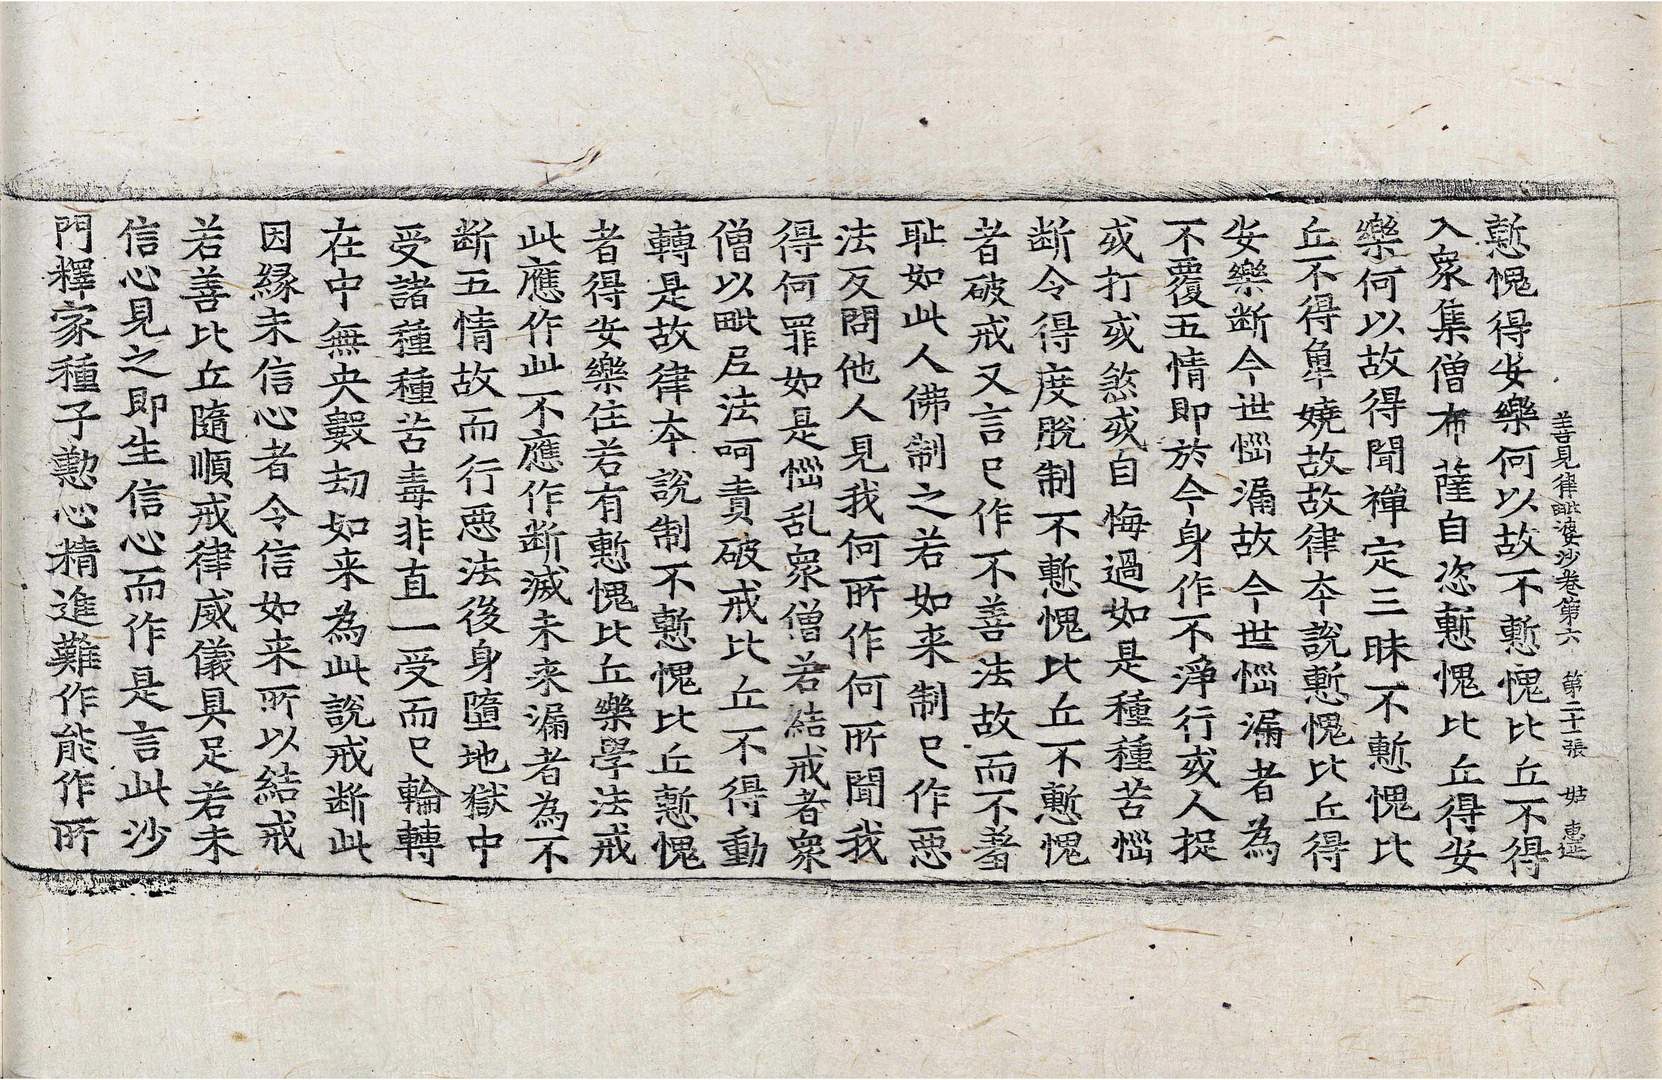 善見律毗婆沙卷第六 第二十張 姑 惠
慙愧得安樂何以故不慙愧比丘不得
入衆集僧布薩自恣慙愧比丘得安
樂何以故得聞禪定三昧不慙愧比
丘不得卑嬈故故律夲說慙愧比丘得
安樂断今世惱漏故今世惱漏者為
不覆五情即於今身作不淨行或人捉
或打或煞或自悔過如是種種苦惱
断令得度脫制不慙愧比丘不慙愧
者破戒又言已作不善法故而不羞
耻如此人佛制之若如来制已作惡
法反問他人見我何所作何所聞我
得何罪如是惱乱衆僧若結戒者衆
僧以毗尼法呵責破戒比丘不得動
轉是故律夲說制不慙愧比丘慙愧
者得安樂住若有慙愧比丘樂學法戒
此應作此不應作断滅未来漏者為不
断五情故而行惡法後身墮地獄中
受諸種種苦毒非直一受而已輪轉
在中無央數劫如来為此說戒断此
因緣未信心者令信如来所以結戒
若善比丘隨順戒律威儀具足若未
信心見之即生信心而作是言此沙
門釋家種子懃心精進難作能作所